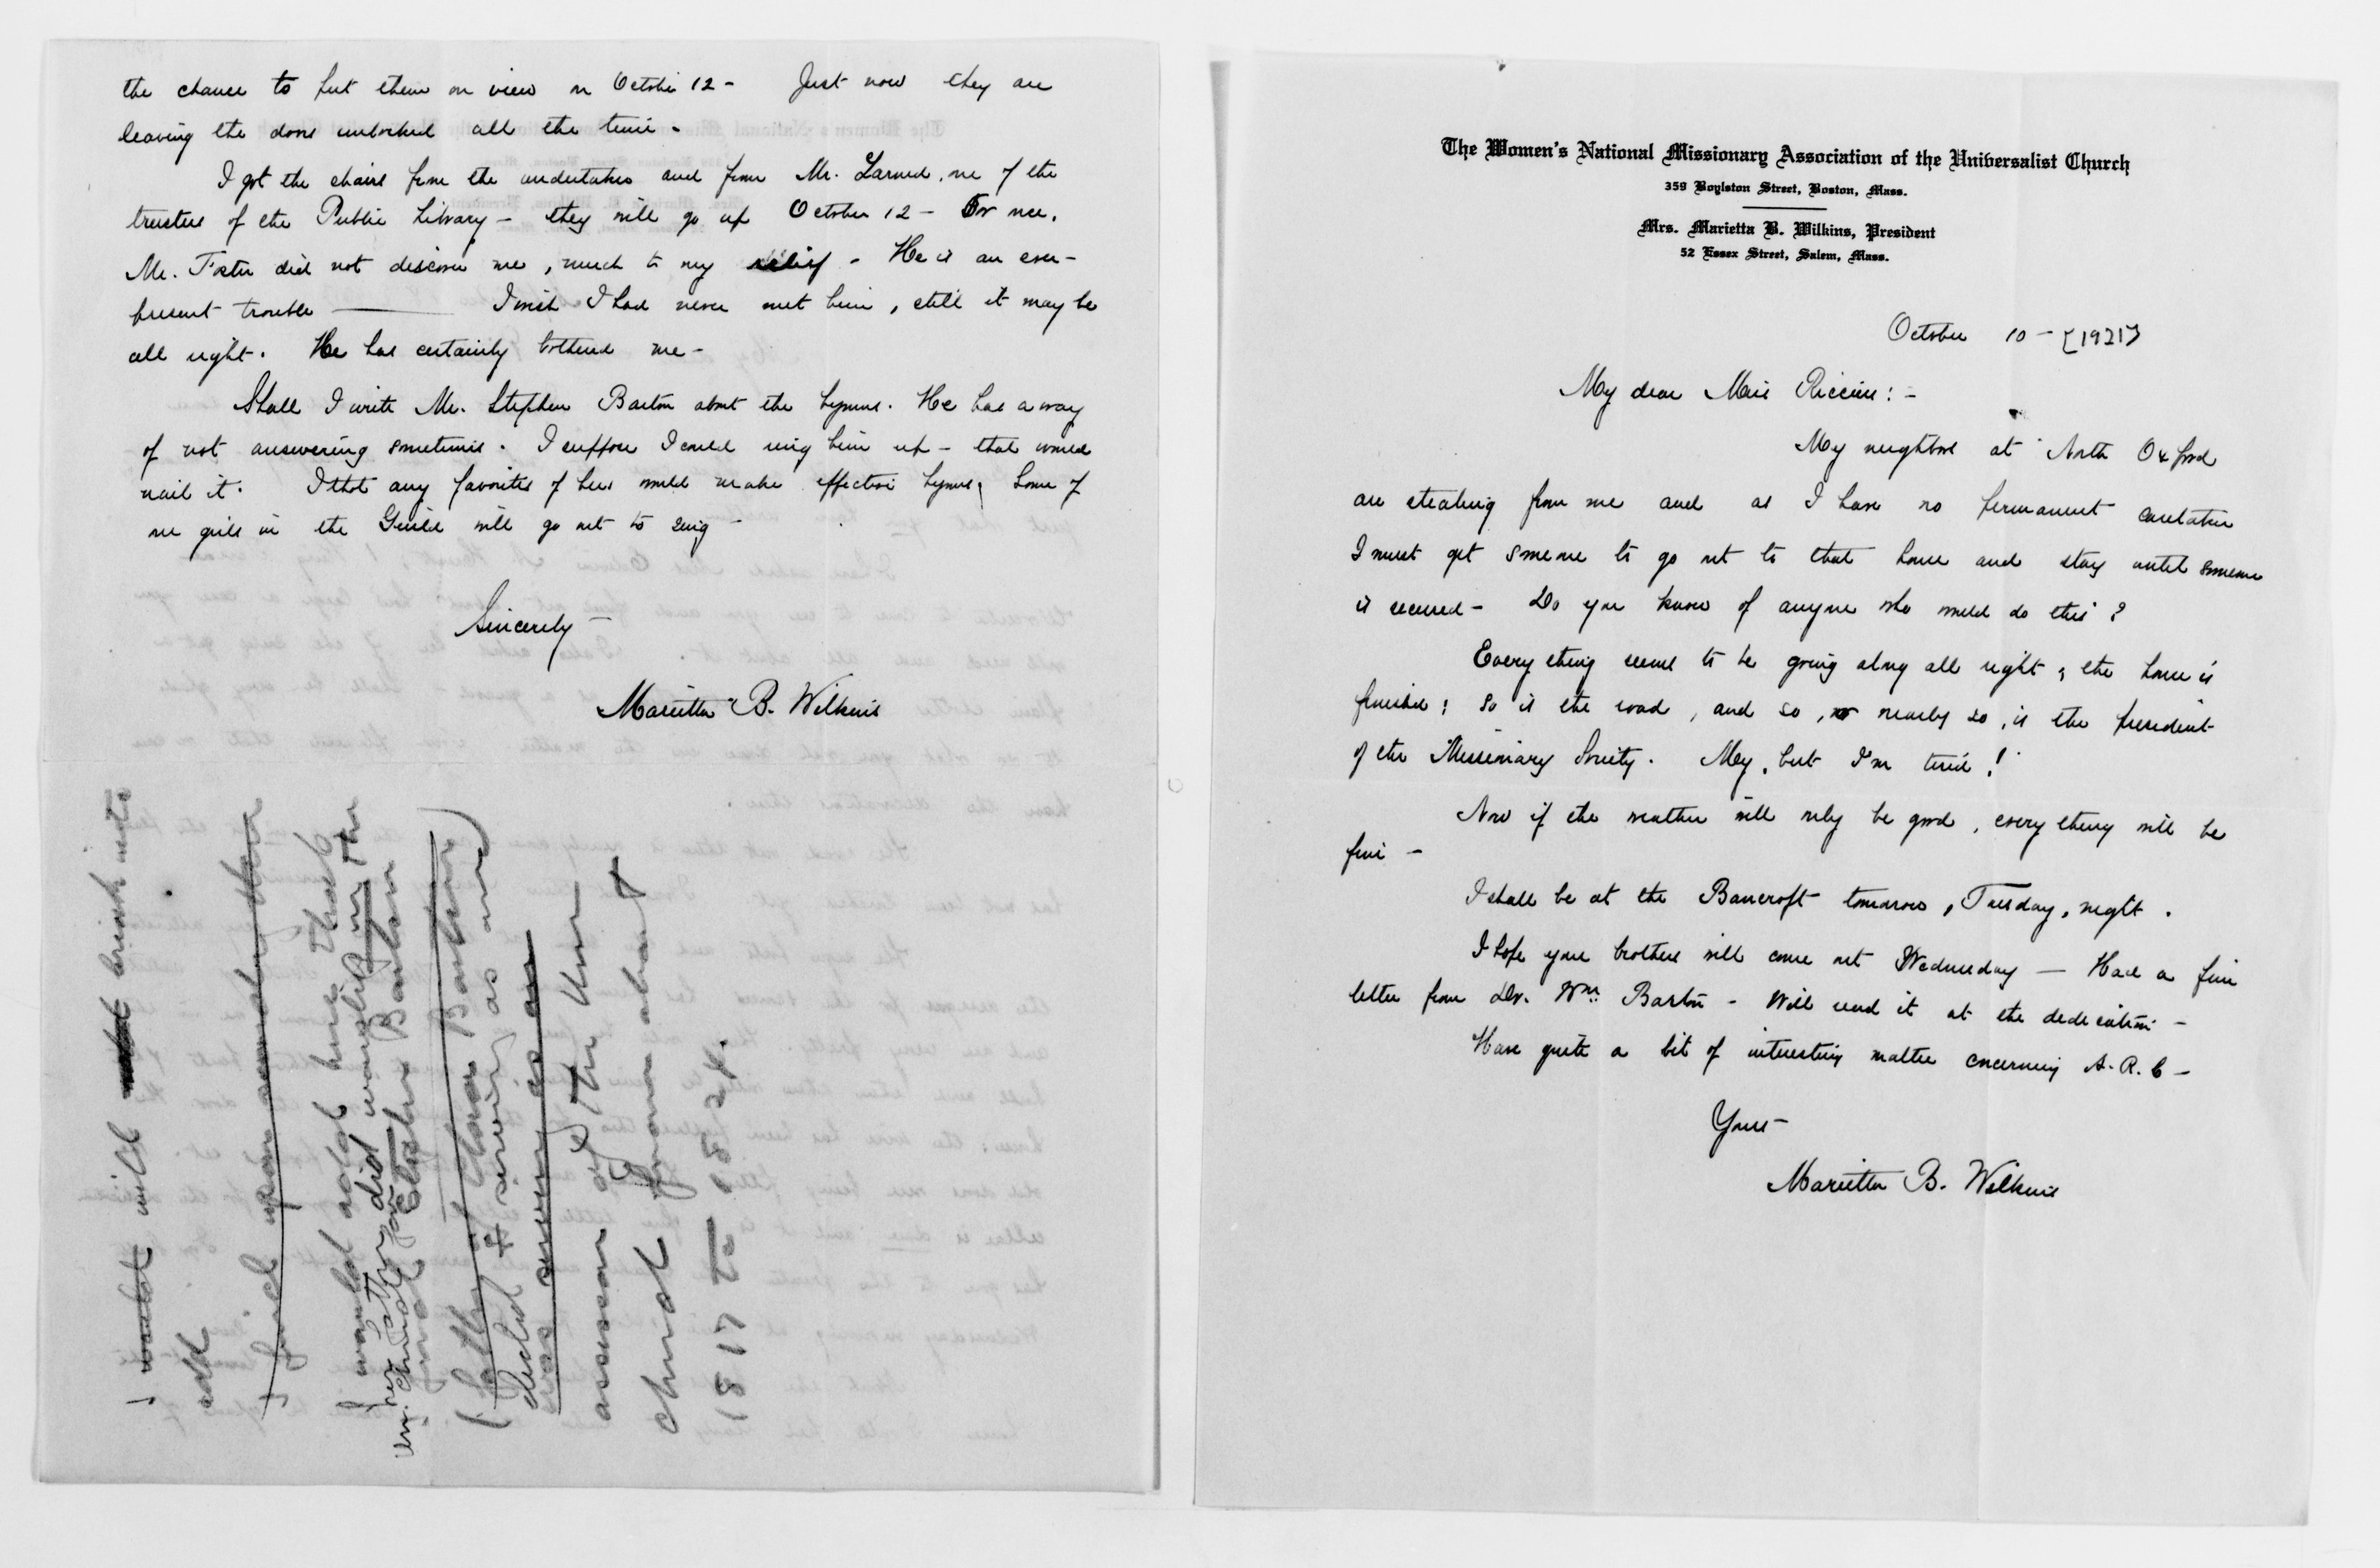 the chance to put them on view on October 12 - Just now they are
leaving the door unlocked all the time -
I got the chairs from the undertaker and from Mr. Larned, one of the
trustees of the Public Library - they will go up October 12 - For once,
Mr. Foster did not discover me, much to my relief - He is an ever-
present trouble ——— I wish I had never met him, still it may be
all right. He has certainly bothered me -
Shall I write Mr. Stephen Barton about the hymns. He has a way
of not answering sometimes. I suppose I could ring him up - that would
nail it. I thot any favorites of hers would make effective hymns; Some of
our girls in the Guild will go out to sing -
Sincerely -
Marietta B. Wilkins
I would will
add
I find upon
I would add here that
did
Elisha Barton
(father of Clara Barton)
as an
assessor of the town
about from about
1817 to 1824.
The Women's National Missionary Association of the Universalist Church
359 Boylston Street, Boston, Mass.
Mrs. Marietta B. Wilkins, President
52 Essex Street, Salem, Mass.
October 10 - [1921]
My dear Miss Riccius: -
My neighbors at North Oxford
are stealing from me and as I have no permanent caretaker
I must get someone to go out to that house and stay until someone
is secured - Do you know of anyone who would do this?
Everything seems to be going along all right; the house is
finished; So is the road, and so, or nearly so, is the president
of the Missionary Society. My, but I'm tired!
Now if the weather will only be good, everything will be
fine -
I shall be at the Bancroft tomorrow, Tuesday, night.
I hope your brothers will come out Wednesday — Had a fine
letter from Dr. Wm. Barton - Will read it at the dedication -
Have quite a bit of interesting matter concerning A. R. C -
Yours -
Marietta B. Wilkins